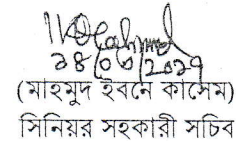 ১৪/০৩/২০১৭
(মাহমুদ ইবনে কাসেম)
সিনিয়র সহকারী সচিব